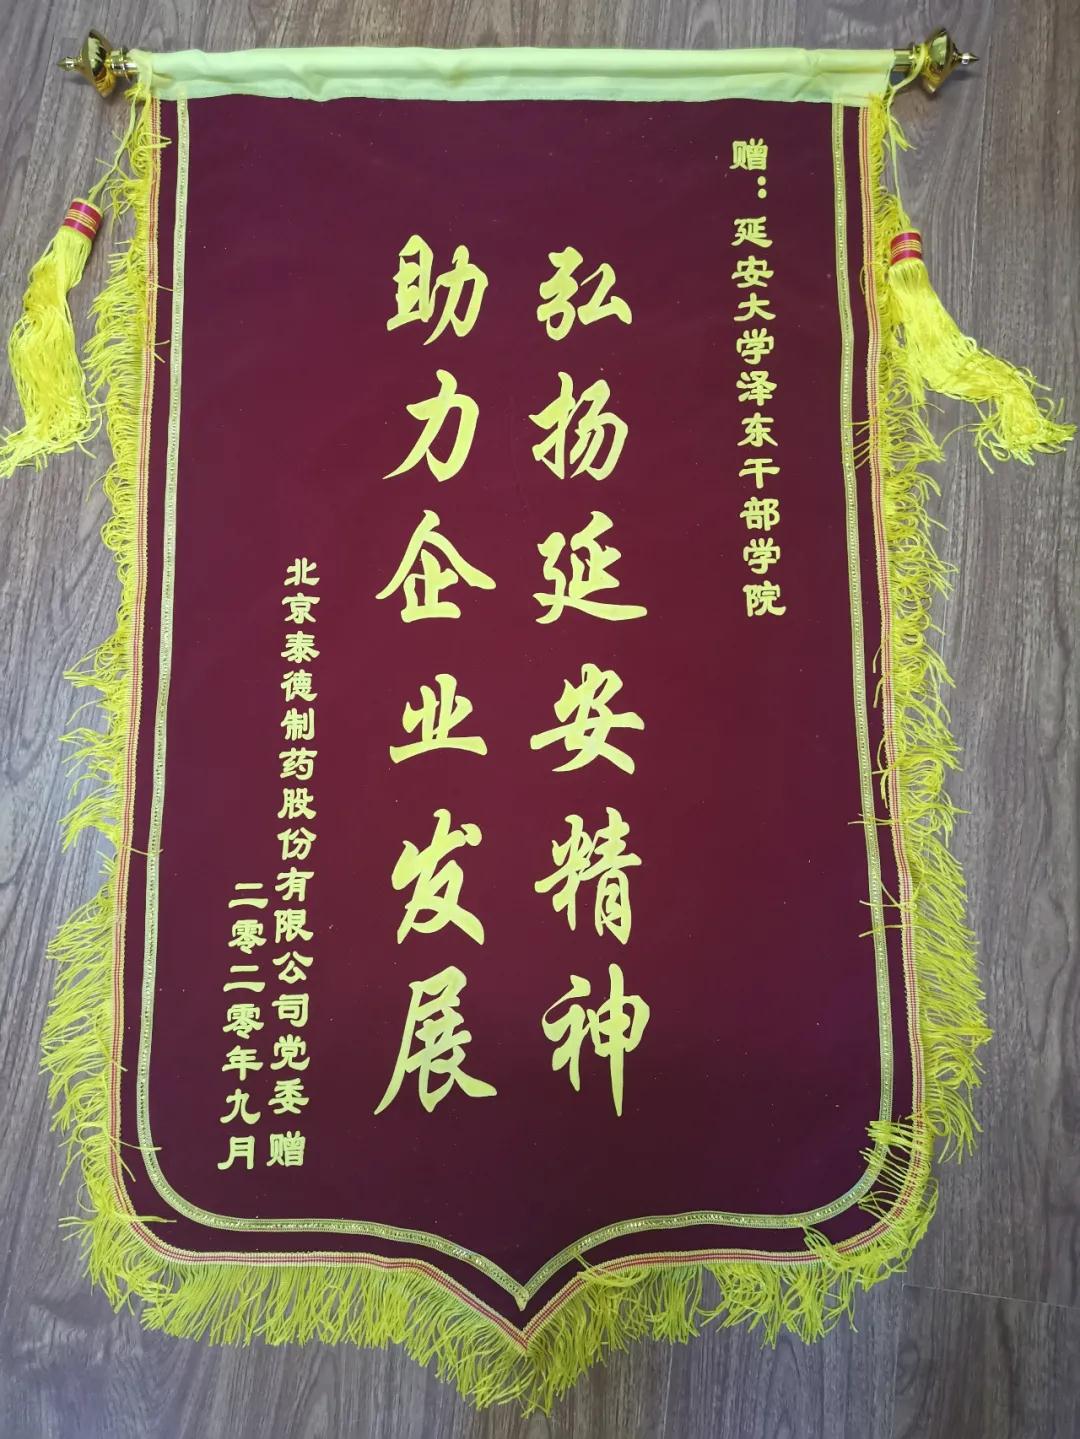 赠：延安大学泽东干部学院
弘扬延安精神
助力企业发展
北京泰德制药股份有限公司党委 赠
二零二零年九月